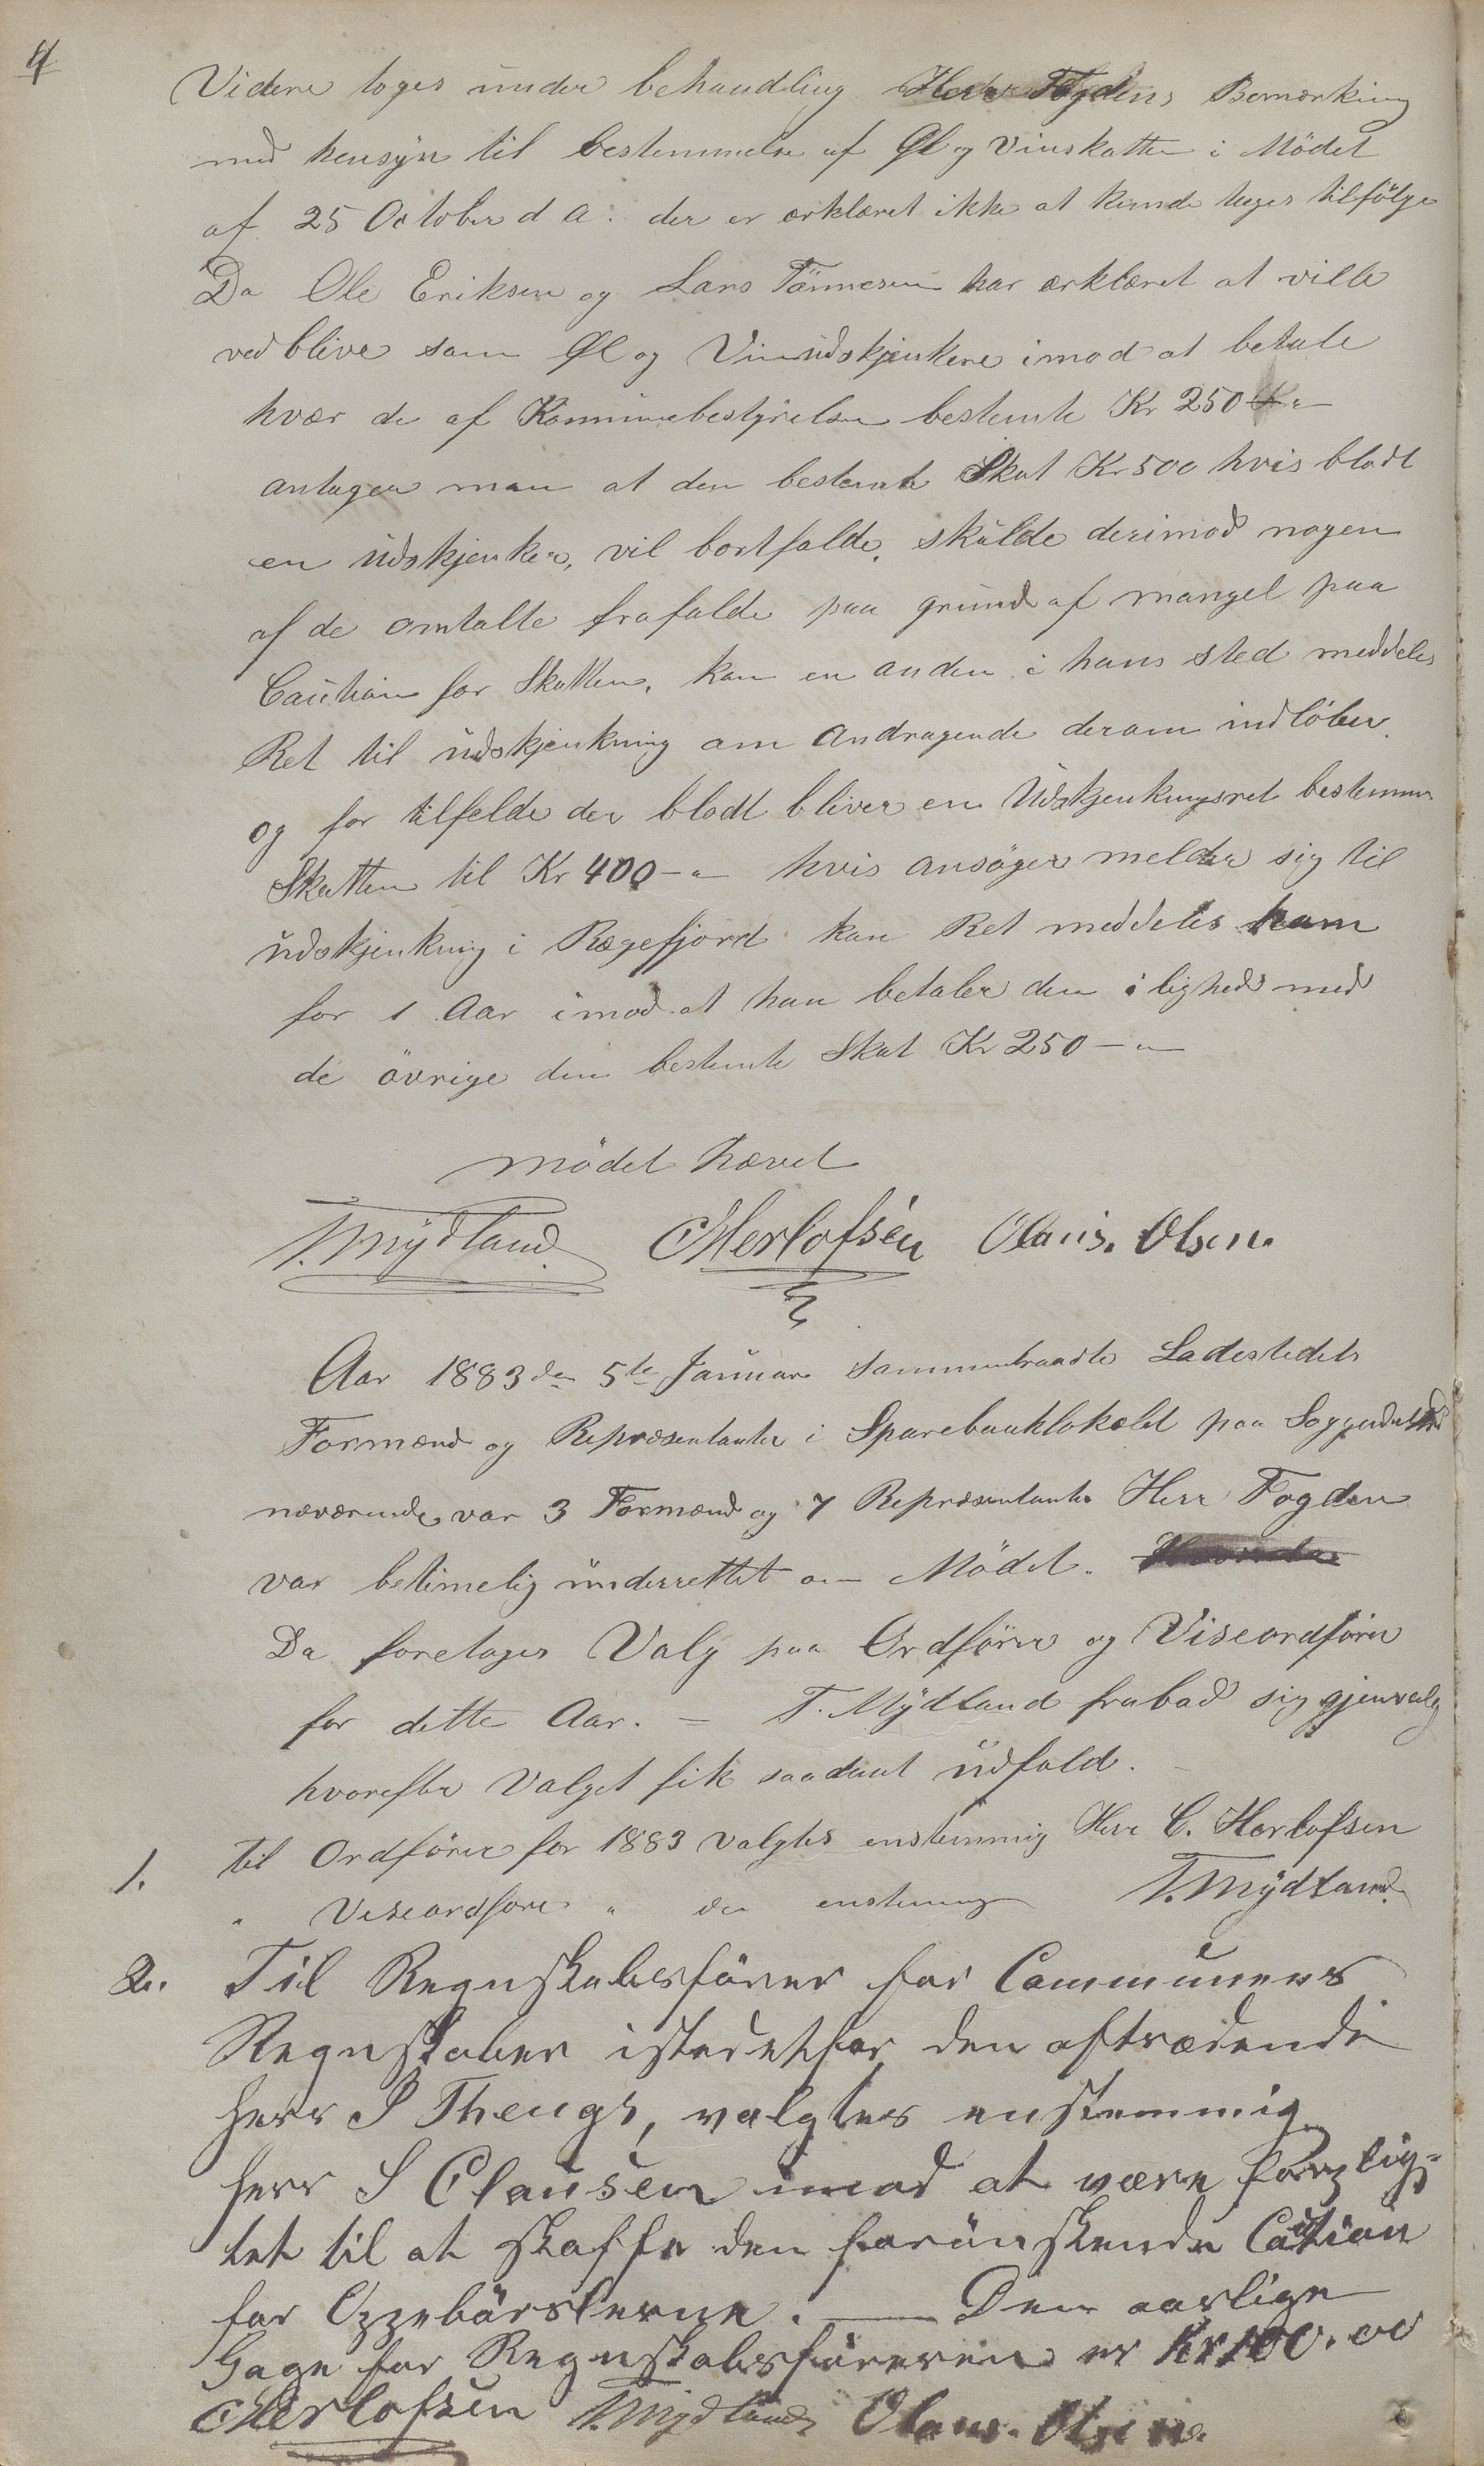 4
Videre toges under behandling Herr Fogdens Bemærkning
med hensyn til bestemmelse af Øl og Vinskatten i Mödet
af 25 October d A. der er erklæret ikke at kunde tages tilfölge
Da Ole Eriksen og Lars Tönnesen har erklæret at ville
vedblive som Øl og Vinudskjenkere imod at betale
hver de af Kommunebestyrelsen bestemte Kr 250
antager man at den bestemte Skat Kr 500 hvis blodt
en udskjenker, vil bortfalde, skulde derimod nogen
af de omtalte frafalde paa grund af mangel paa
Caution for Skatten, kan en anden i hans sted meddeles
Ret til udskjenkning om Andragende derom indlöber.
og for tilfelde der blodt bliver en Udskjenkningsret bestemmes
Skatten til Kr 400 - " hvis ansöger melder sig til
udskjenkning i Rægefjord kan Ret meddeles ham
for 1 Aar imod at han betaler den i lighed med
de övrige den bestemte Skat Kr 250 - "
Mödet hævet
T. Mydland CHerlofsen Olaus. Olsen.
Aar 1883 den 5te Januar sammentraadte Ladestedets
Formænd og Repræsentanter i Sparebanklokalet paa Soggendal
nærværende var 3 Formænd og 7 Repræsentanter Herr Fogden
var betimelig underrettet om Mödet.
Da foretoges Valg paa Ordförer og Viseordförer
for dette Aar. - T. Mydland frabad sig gjenvalg
hvorefter Valget fik saadant udfald.
1. til Ordförer for 1883 valgtes enstemmig Herr C. Herlofsen
" Viseordförer " do enstemmig T. Mydland.
2. Til Regnskabsförer for Communens
Regnskaber istedetfor den aftrædende
Herr S Thengs, valgtes enstemmig
Herr S Clausen imod at være forplig-
tet til at skaffe den forönskende Caution
for Oppebörslerne. — Den aarlige
Gage for Regnskabsföreren er Kr 100.00
CHerlofsen T. Mydland Olaus. Olsen.